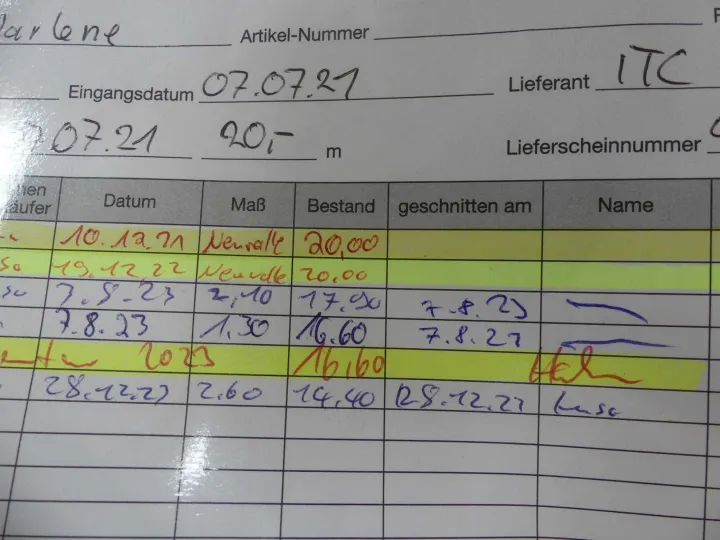 arlene Artikel-Nummer
Eingangsdatum 07.07.21 Lieferant ITC
07.21 20,- m Lieferscheinnummer
hen
äufer Datum Maß Bestand geschnitten am Name
10.12.21 20,00
19.12.22 20.00
3.8.23 2,10 17.90 7.8.23
7.8.23 1.30 16.60 7.8.23
2023 16,60
28.12.23 2.60 14.40 28.12.23